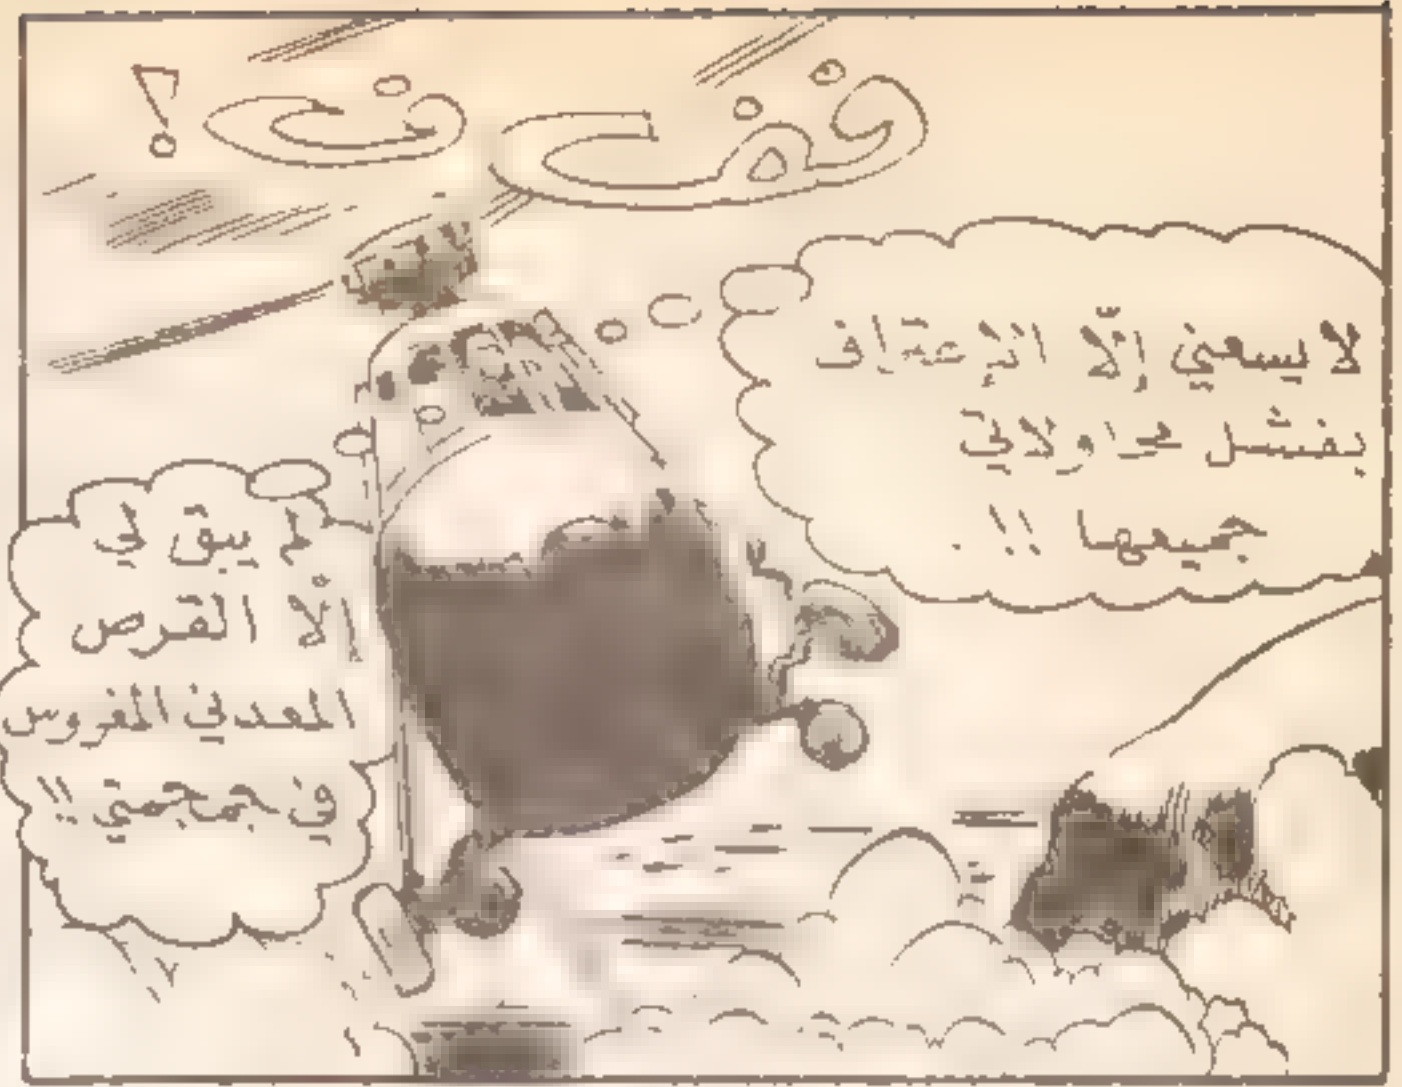 لا يسعني إلّا الإعتراف
بفشل محاولاتي
جميعها !! .
لم يبق لي
الّا القرص
المعدني المغروس
في جمجمتي !!